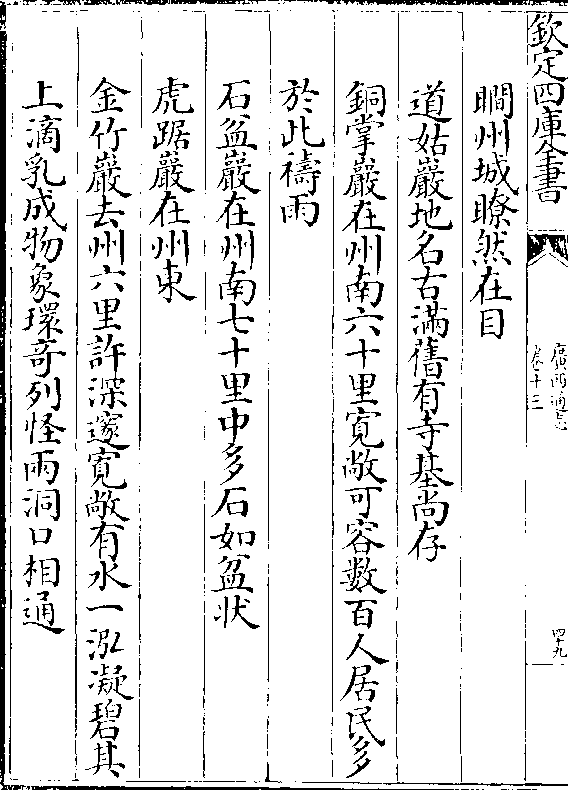 欽定四庫全書
廣西通志
卷十三
四十九
瞷州城瞭然在目
道姑巖地名古滿舊有寺基尚存
銅掌巖在州南六十里寬敞可容數百人居民多
於此禱雨
石盆巖在州南七十里中多石如盆狀
虎踞巖在州東
金竹巖去州六里許深邃寬敞有水一泓凝碧其
上滴乳成物象環奇列怪兩洞口相通